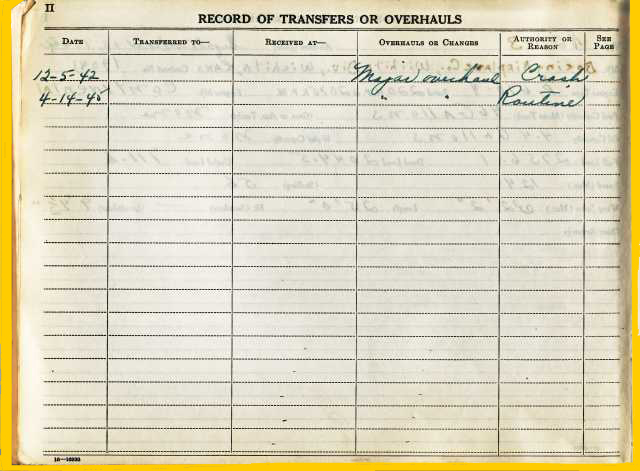 II
RECORD OF TRANSFERS OR OVERHAULS
DATE TRANSFERRED TO— RECEIVED AT— OVERHAULS OR CHANGES AUTHORITY OR REASON SEE PAGE
12-5-42 Major overhaul Crash
4-14-45 " " Routine
16—16930